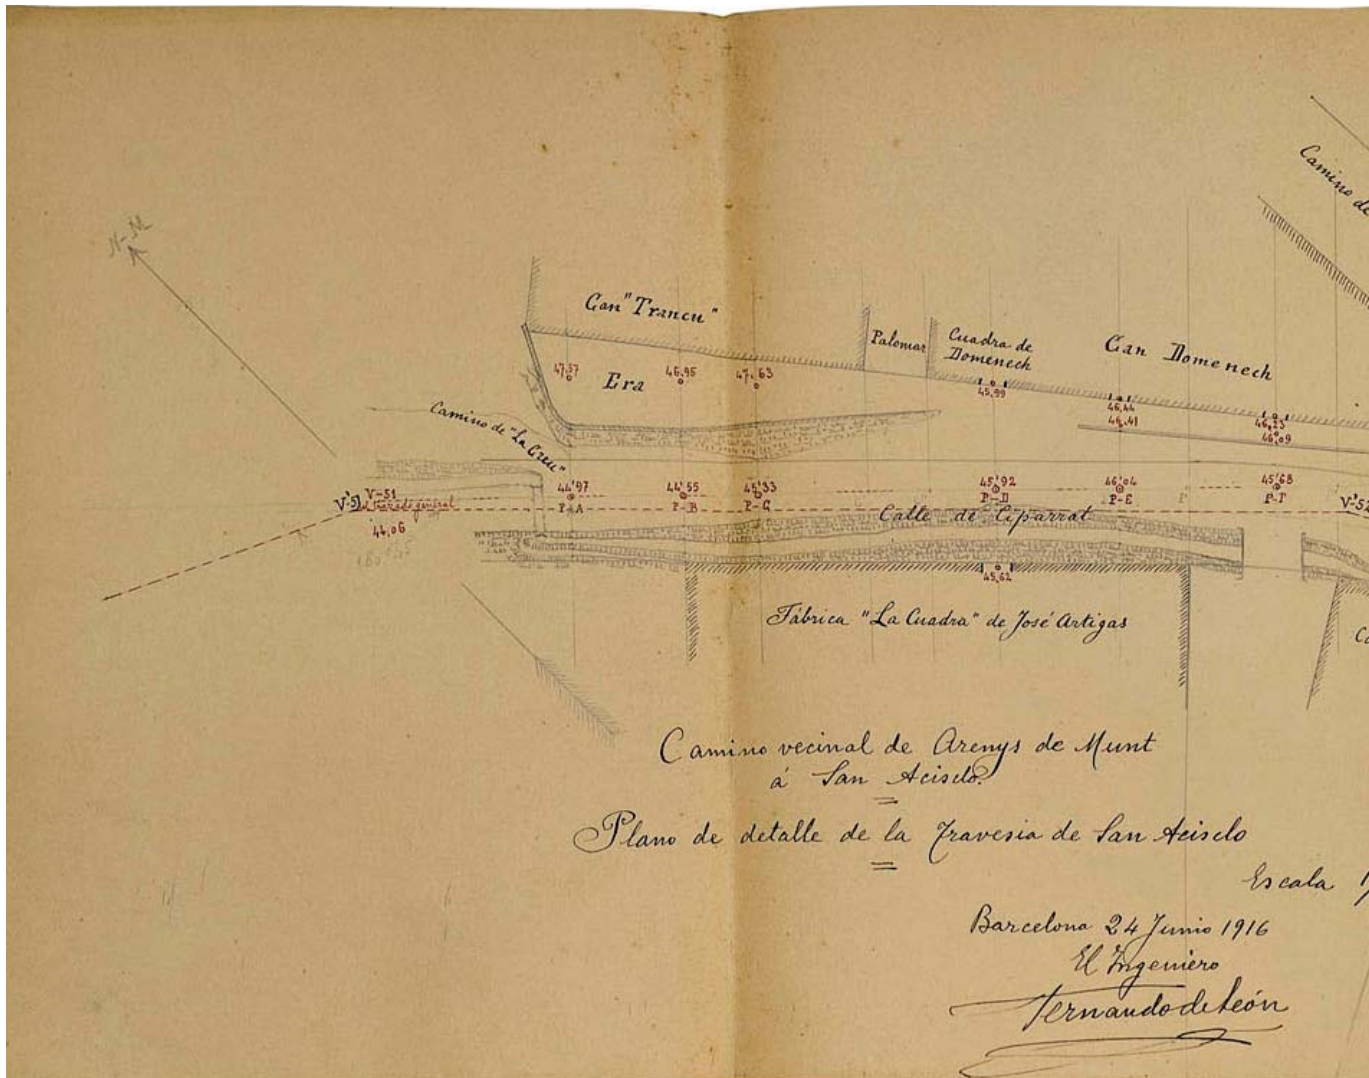 Camino de
N-M
Can "Trancu"
Palomar
Cuadra de
Domenech
Can Domenech
47,57
Era
46,95
47,63
45,99
46,44
46,41
46,23
46,09
Camino de "La Creu"
V'51
V-51
del trazado general
44,06
44'97
P-A
44'55
P-B
45'33
P-C
45'92
P-D
46'04
P-E
P
45'68
P-F
V'52
Calle de Ciparrat
45,62
Fábrica "La Cuadra" de José Artigas
Camino vecinal de Arenys de Munt
á San Acisclo.
Plano de detalle de la Travesia de San Acisclo
Escala 1/
Barcelona 24 Junio 1916
El Ingeniero
Fernando de León